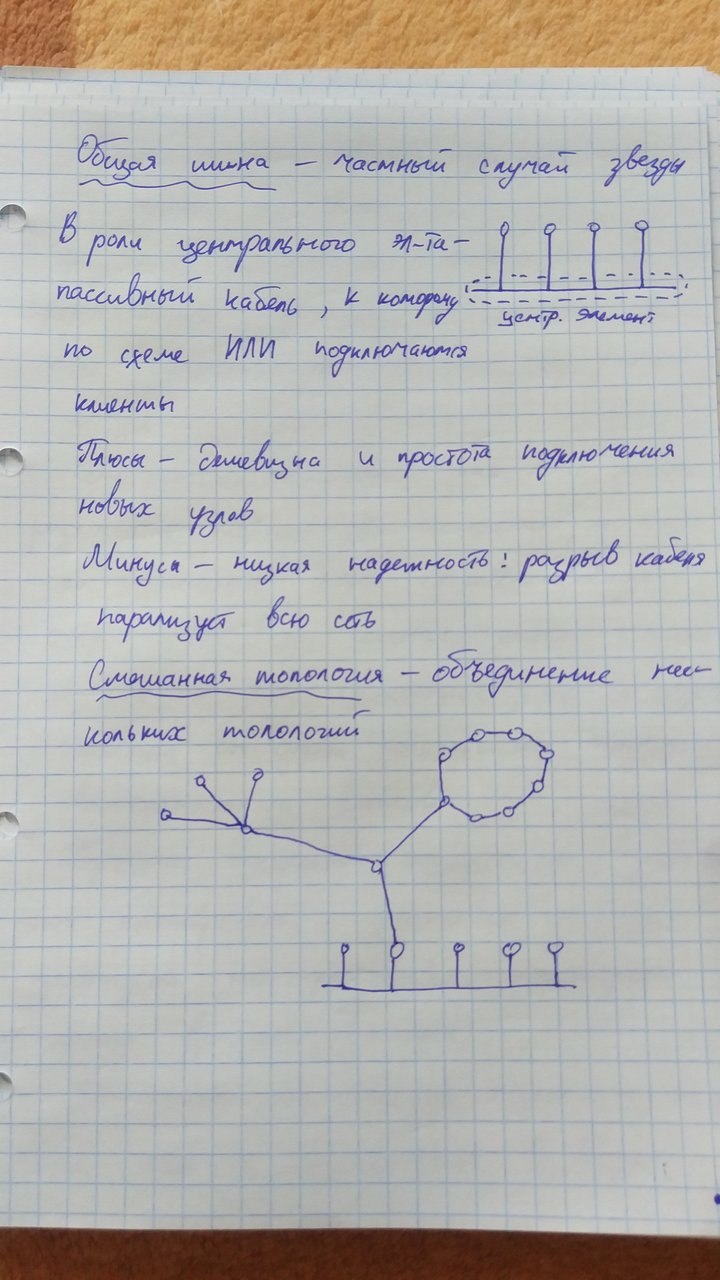 Общая шина – частный случай звезды
В роли центрального эл-та –
пассивный кабель, к которому
центр. элемент
по схеме ИЛИ подключаются
клиенты
Плюсы – дешевизна и простота подключения
новых узлов
Минусы – низкая надежность: разрыв кабеля
парализует всю сеть
Смешанная топология – объединение нес-
кольких топологий